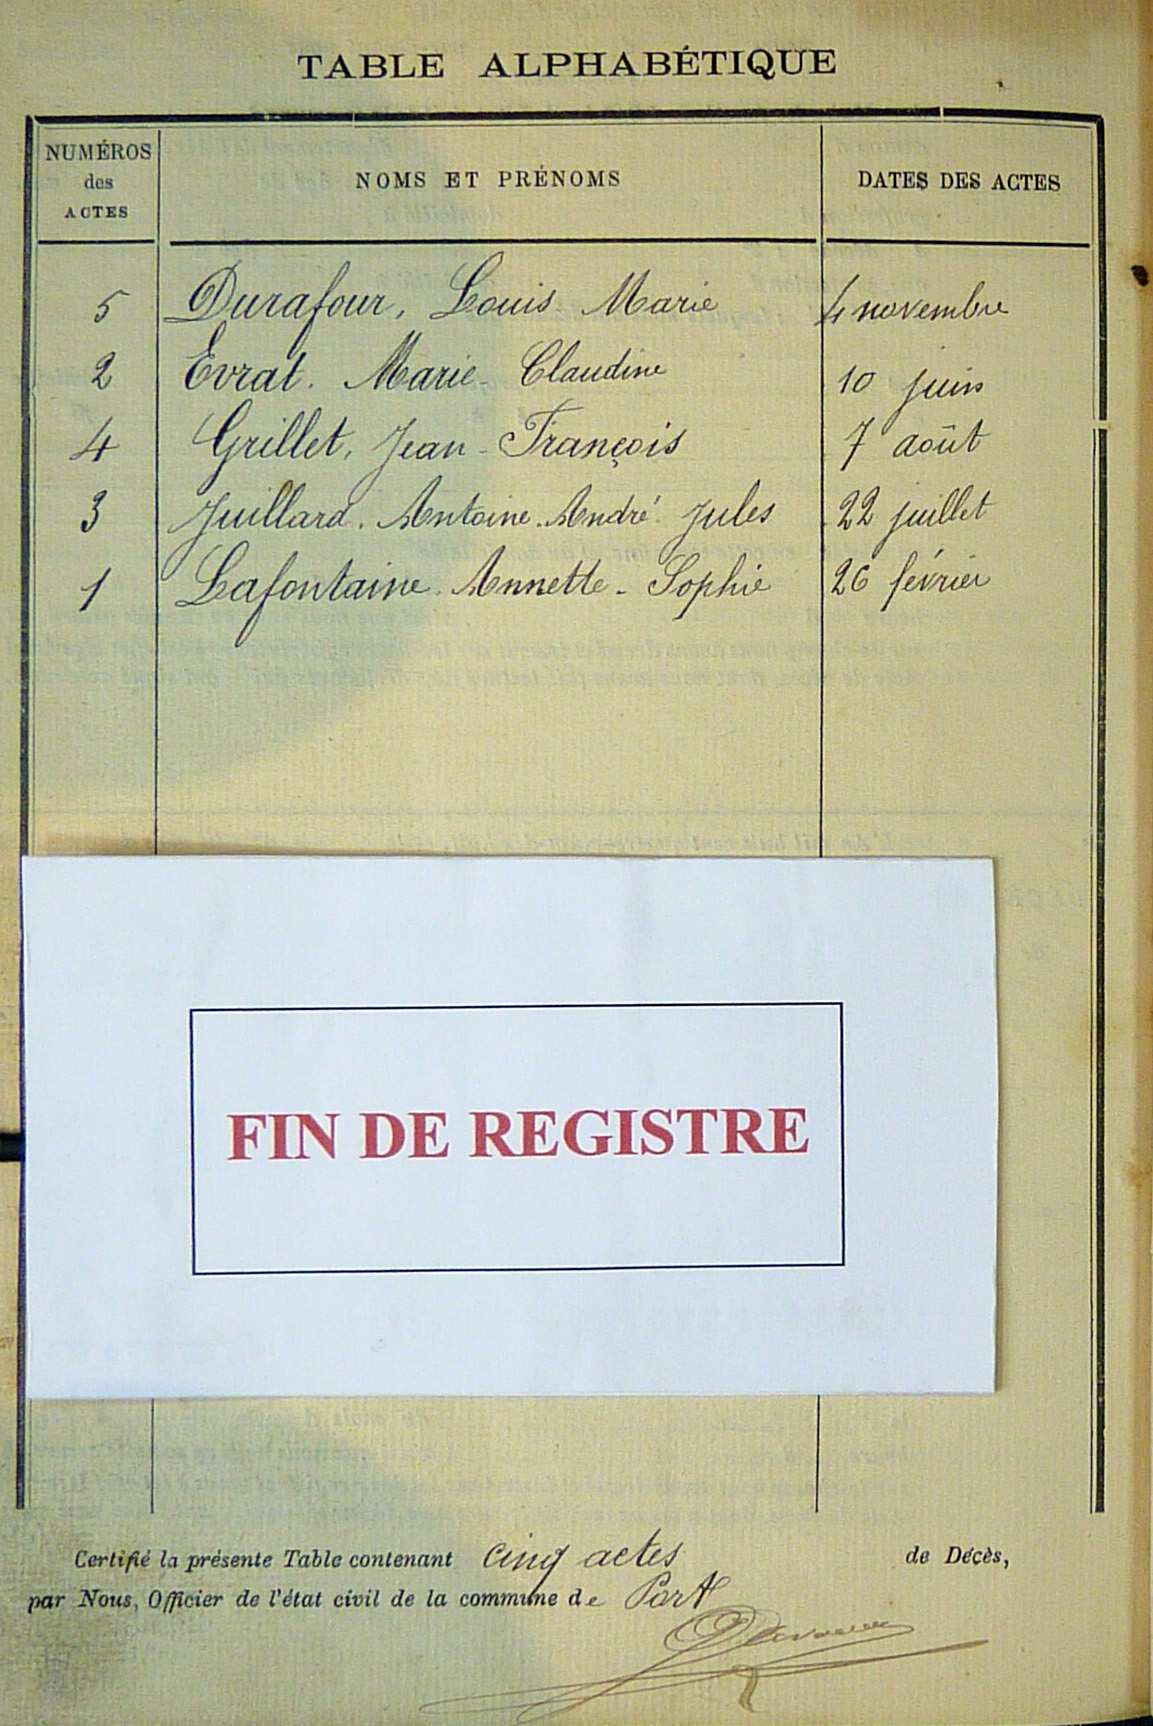 TABLE ALPHABÉTIQUE
NUMÉROS des ACTES NOMS ET PRÉNOMS DATES DES ACTES
5 Durafour, Louis Marie 4 novembre
2 Evrat. Marie-Claudine 10 juin
4 Grillet, Jean-François 7 août
3 Juillard. Antoine. André. Jules 22 juillet
1 Lafontaine. Annette-Sophie 26 février
FIN DE REGISTRE
Certifié la présente Table contenant cinq actes de Décès,
par Nous, Officier de l'état civil de la commune de Port